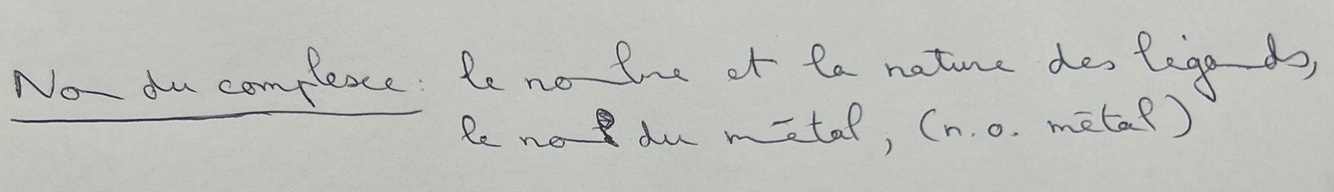 Nom du complexe : le nombre et la nature des ligands,
le nom du métal, (n.o. métal)